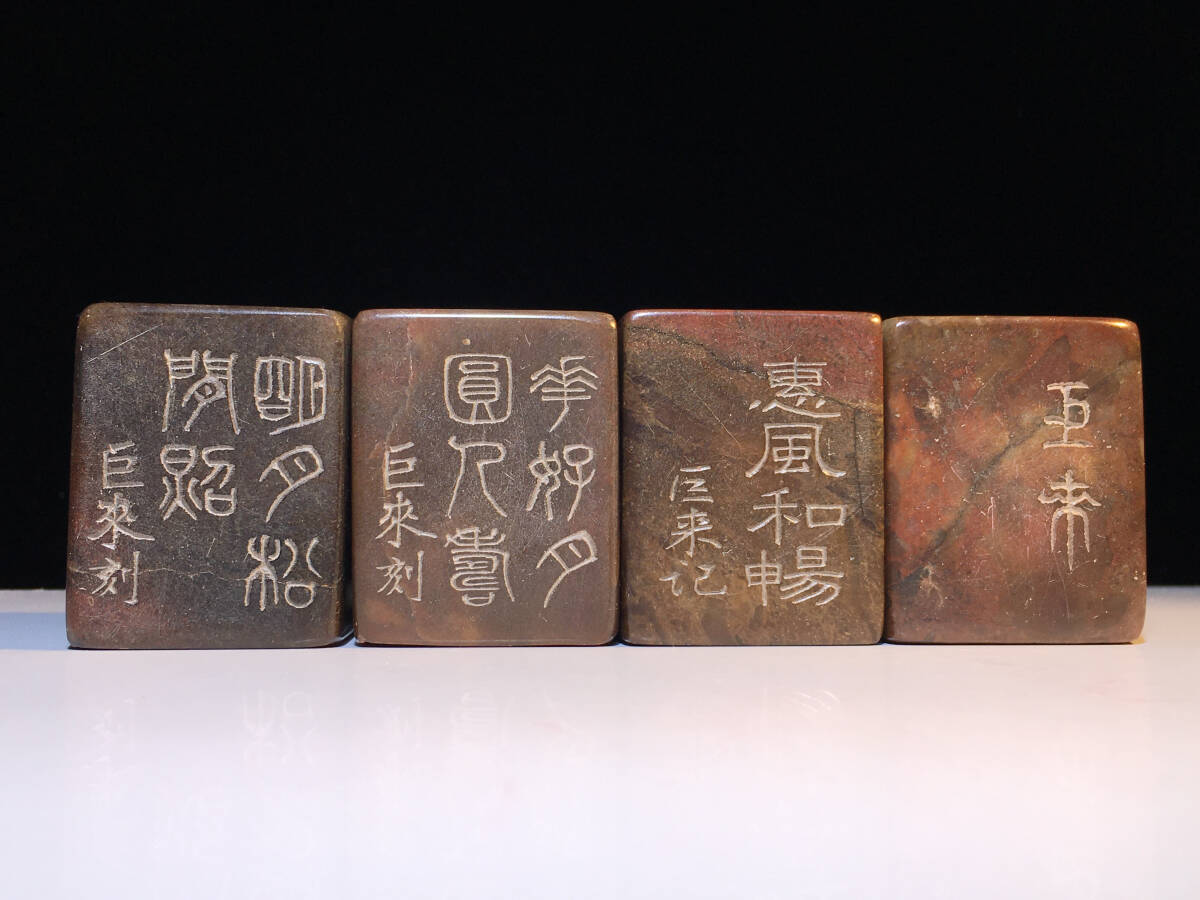 明月松
間照
巨來刻
華好月
圓人壽
巨來刻
惠風和暢
巨来記
巨來